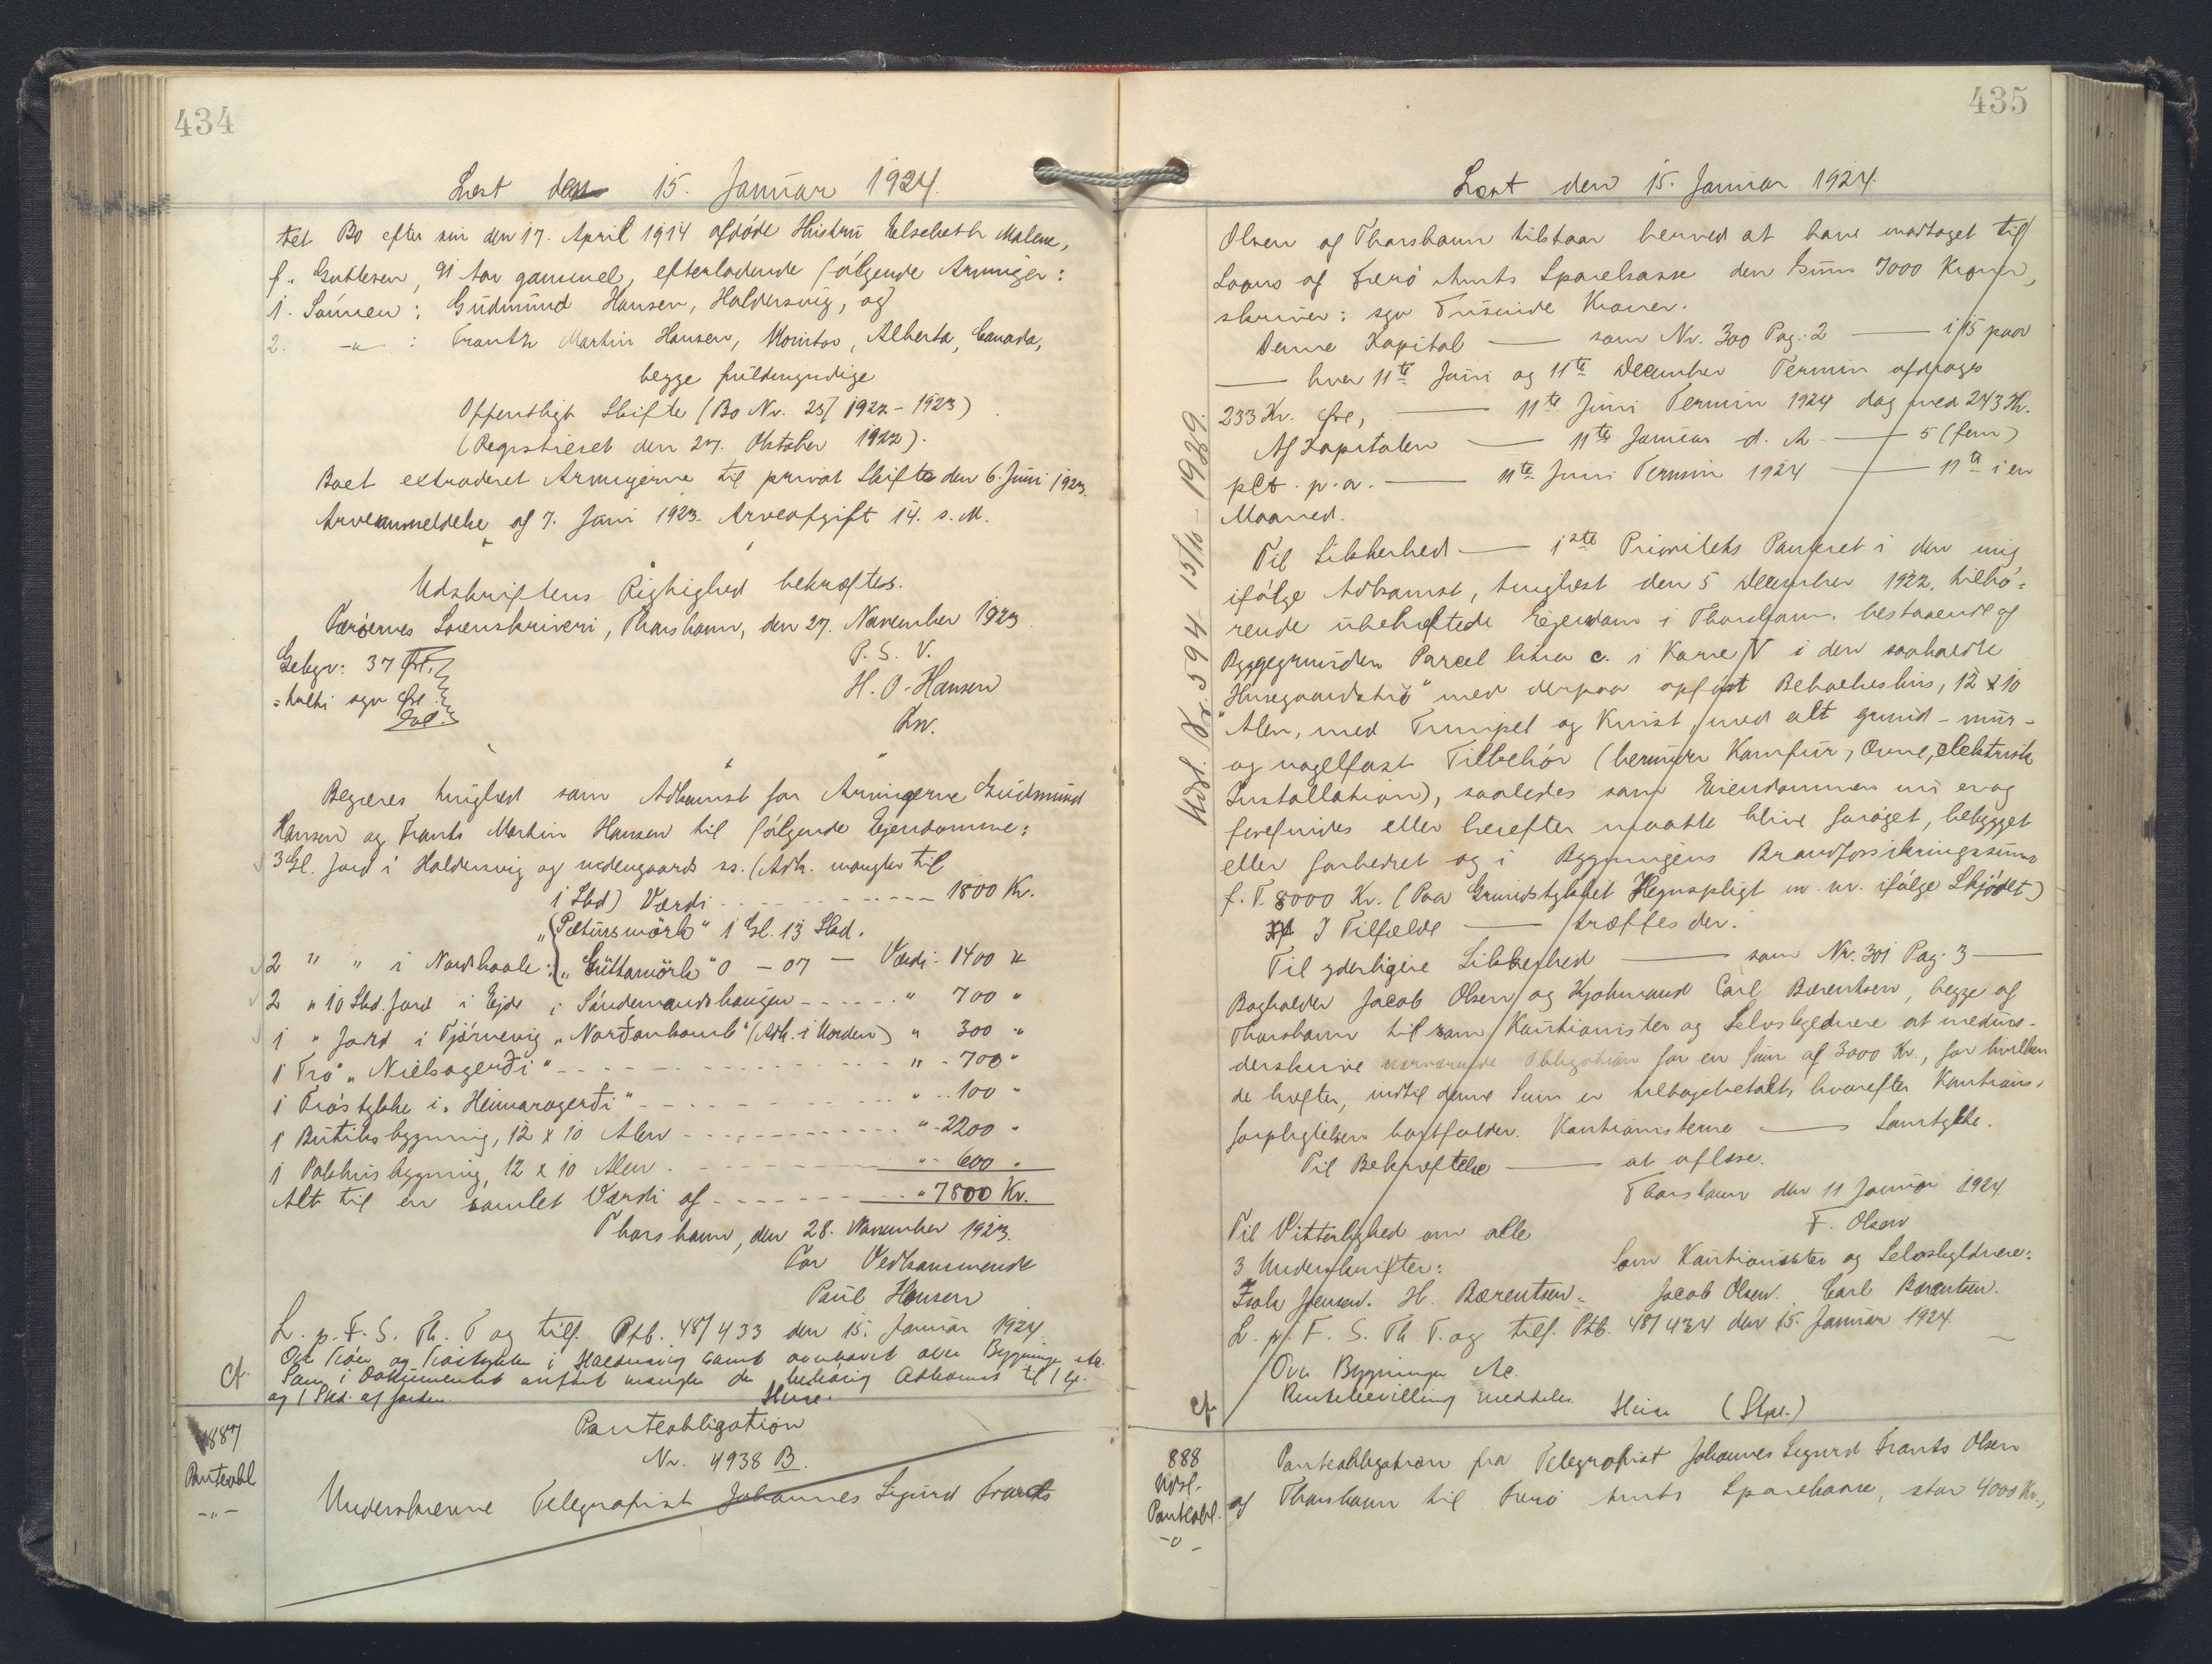 434
Læst den 15. Januar 1924.
tet Bo efter sin den 17. April 1914 afdøde Hustru Elsebeth Malene,
f. Guttesen, 41 Aar gammel, efterladende følgende Arvinger:
1. Sønnen: Gudmund Hansen, Haldersvig, og
2. -"- : Frantz Martin Hansen, Monitor, Alberta, Canada,
begge fuldmyndige
Offentligt Skifte (Bo Nr. 25/1922-1923)
(Registreret den 27. Oktober 1922).
Boet extraderet Arvingerne til privat Skifte den 6. Juni 1923.
Arveanmeldelse af 7. Juni 1923. Arveafgift 14. s. M.
Udskriftens Rigtighed bekræftes.
Færøernes Sorenskriveri, Thorshavn, den 27. November 1923
Gebyr: 37 Øre
P. S. V.
H. O. Hansen
Fm.
Begæres tinglæst som Adkomst for Arvingerne Gudmund
Hansen og Frants Martin Hansen til følgende Ejendomme:
3 Gl. Jord i Haldersvig og nedengaards ss. (Adk. mangler til
1 Skd) Værdi - - - 1800 Kr.
"Pætursmörk" 1 Gl. 13 Skd.
2 " " i Nordskaale: "Guttamörk" 0 - 07 - Værdi - 1400 "
2 " 10 Skd. Jord i Ejde i Söndemandshaugen - - - " 700 "
1 " Jord i Tjörnevig "Norðankomb" (Adk. i Orden) " 300 "
1 Trö "Nielsagerði" - - - " - 700 "
1 Tröstykke i "Heimaragerði" - - - " - 100 "
1 Butiksbygning, 12 x 10 Alen - - - " - 2200 "
1 Pakhusbygning, 12 x 10 Alen - - - " - 600 "
Alt til en samlet Værdi af - - - " 7800 Kr.
Thorshavn, den 28. November 1923.
For Vedkommende
Paul Hansen
L. p. F. S. Th. T og tilf. Ptb. 48/433 den 15. Januar 1924
Om Tröen og Tröstykket i Haldersvig samt ovenanført alene Bygninger Ac.
Som i Dokumentet anført mangler der behörig Adkomst til 1 Gl.
og 1 Skd. af Jorden.
Cf.
887
Panteobl
-"-
Panteobligation
Nr. 4938 B.
Underskrevne Telegrafist Johannes Sigurd Frants
435
Læst den 15. Januar 1924.
Olsen af Thorshavn tilstaar herved at have modtaget til
Laans af Færø Amts Sparekasse den Sum 7000 Kroner,
skriver: syv Tusinde Kroner.
Denne Kapital — som Nr. 300 Pag: 2 — i 15 paa
— hver 11te Juni og 11te December Termin afdrages
233 Kr. Øre, — 11te Juni Termin 1924 dog med 243 Kr.
Af Kapitalen — 11te Januar d. A. — 5 (fem)
pCt. p. a. — 11te Juni Termin 1924 — 11te i en
Maaned.
Til Sikkerhed — 1ste Prioritets Panteret i den mig
ifølge Adkomst, tinglæst den 5 December 1922, tilhø-
rende ubehæftede Ejendom i Thorshavn. bestaaende af
Byggegrunden Parcel litra c. i Karre IV i den saakaldte
"Husegaardströ" med derpaa opført Beboelseshus, 12 x 10
Alen, med Frimpel og Kvist, med alt grund- mur-
og nagelfast Tilbehör (herunder Komfur, Ovne, elektrisk
Installation), saaledes som Ejendommen nu er og
forefindes eller herefter maatte blive forøget, bebygget
eller forbedret og i Bygningens Brandforsikringssum
f. T. 8000 Kr. (Paa Grundstykket Hegnspligt m. m. ifølge Skjødet)
I Tilfælde — træffes der.
Til yderligere Sikkerhed — som Nr. 301 Pag. 3 —
Bogholder Jacob Olsen og Kjøbmand Carl Bærentsen, begge af
Thorshavn til som Kautionister og Selvskyldnere at medun-
derskrive nærværende Obligation for en Sum af 3000 Kr., for hvilken
de hæfter, indtil denne Sum er tilbagebetalt, hvorefter Kautions-
forpligtelsen bortfalder. Kautionisterne — Samtykke.
Til Bekræftelse — at aflæse.
Thorshavn den 11 Januar 1924
F. Olsen
Til Vitterlighed om alle
3 Underskrifter:
Som Kautionister og Selvskyldnere:
Isak Jensen. H. Bærentsen.
Jacob Olsen. Carl Bærentsen.
L. p. F. S. Th. T. og tilf. Ptb. 48/434 den 15. Januar 1924
Om Bygninger Ac.
Rentebevilling meddeles
(Skpr.)
Cf.
Udsl. Nr. 594 15/10-1929.
888
Udsl.
Panteobl.
-"-
Panteobligation fra Telegrafist Johannes Sigurd Frants Olsen
af Thorshavn til Færø Amts Sparekasse, stor 4000 Kr.,